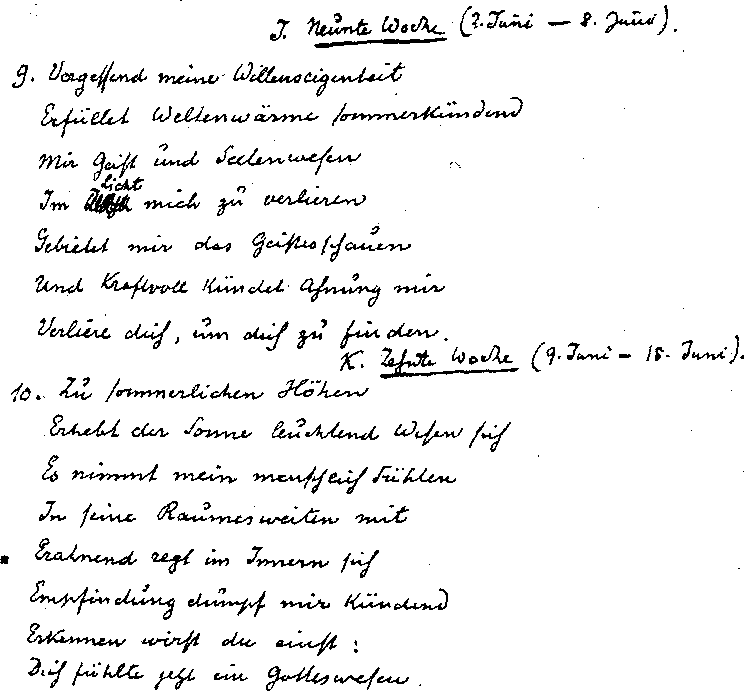 J. Neunte Woche (2. Juni – 8. Juni).
9. Vergessend meine Willenseigenheit
Erfüllet Weltenwärme sommerkündend
Mir Geist und Seelenwesen
Im Licht mich zu verlieren
Gebietet mir das Geistesschauen
Und Kraftvoll kündet Ahnung mir
Verliere dich, um dich zu finden.
K. Zehnte Woche (9. Juni – 15. Juni).
10. Zu sommerlichen Höhen
Erhebt der Sonne leuchtend Wesen sich
Es nimmt mein menschlich Fühlen
In seine Raumesweiten mit
Erahnend regt im Innern sich
Empfindung dumpf mir kündend
Erkennen wirst du einst:
Dich fühlte jetzt ein Gotteswesen.